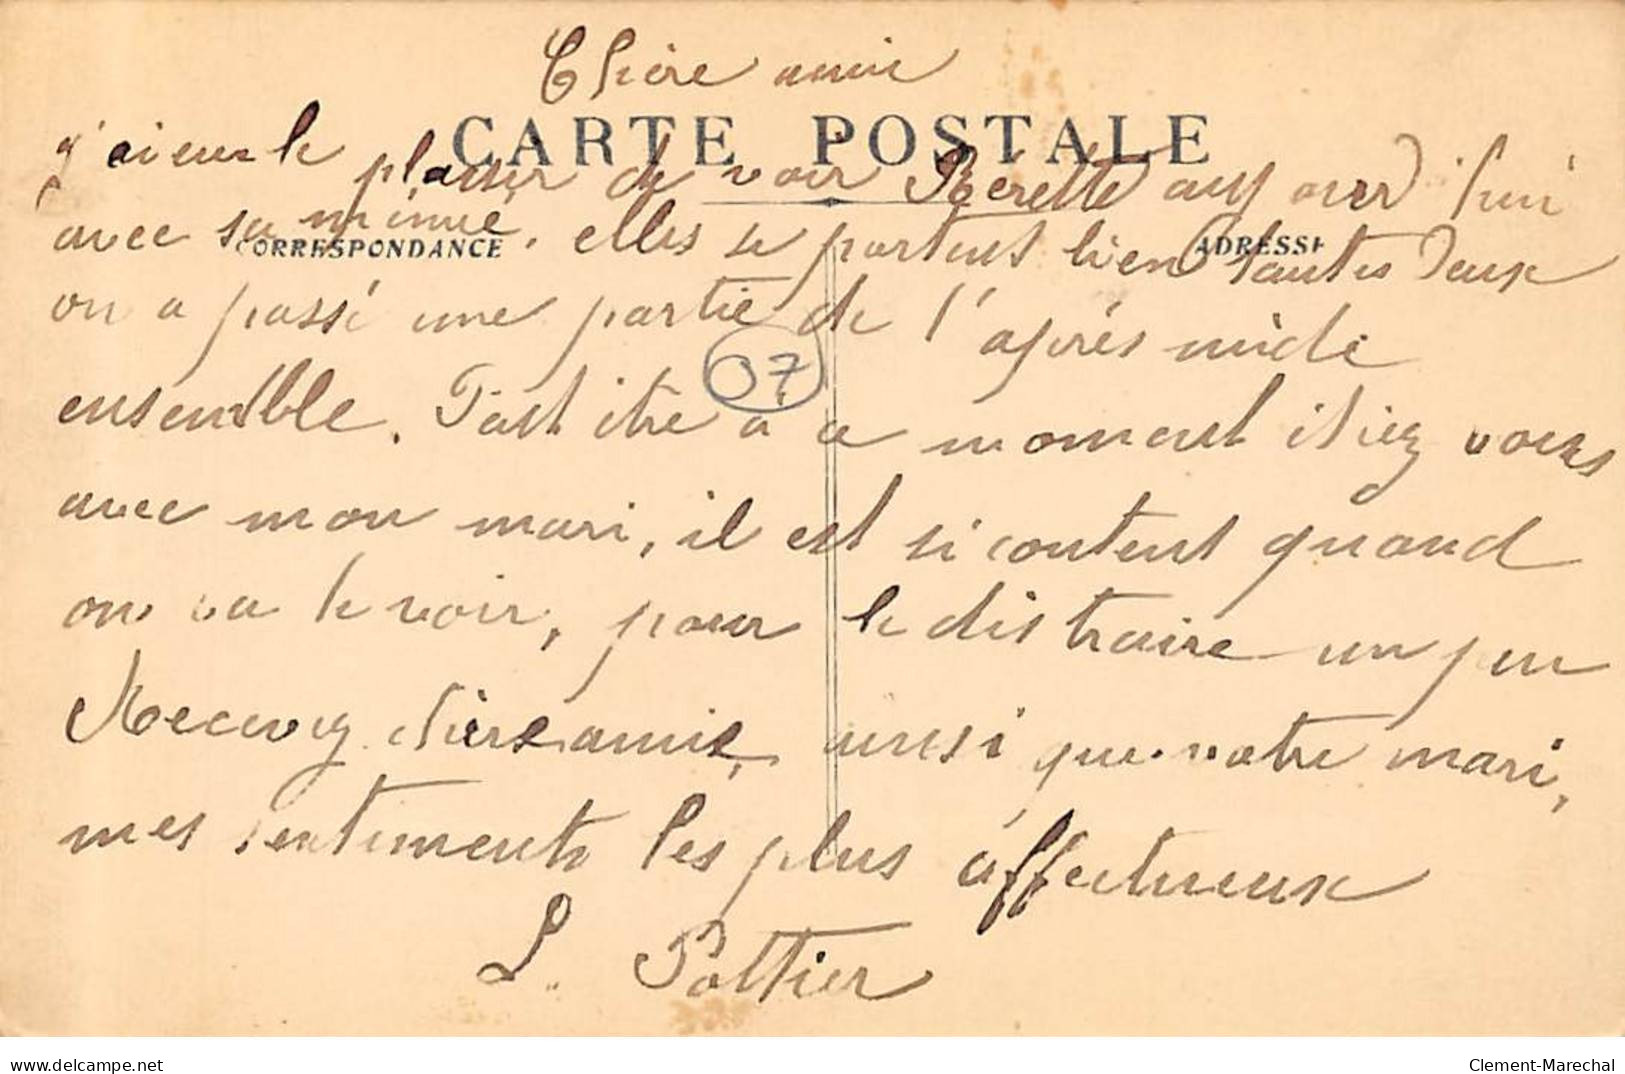 Chère amie
CARTE POSTALE
j'ai eu le plaisir de voir aujourd'hui
CORRESPONDANCE
ADRESSE
avec sa mémé, elles se portent bien toutes deux
on a passé une partie de l'après midi
37
ensemble. Peut être à ce moment étiez vous
avec mon mari, il est si content quand
on va le voir, pour le distraire un peu
Recevez chère amie, ainsi que votre mari,
mes sentiments les plus affectueux
L. Pottier
delcampe.net
Clement-Marechal